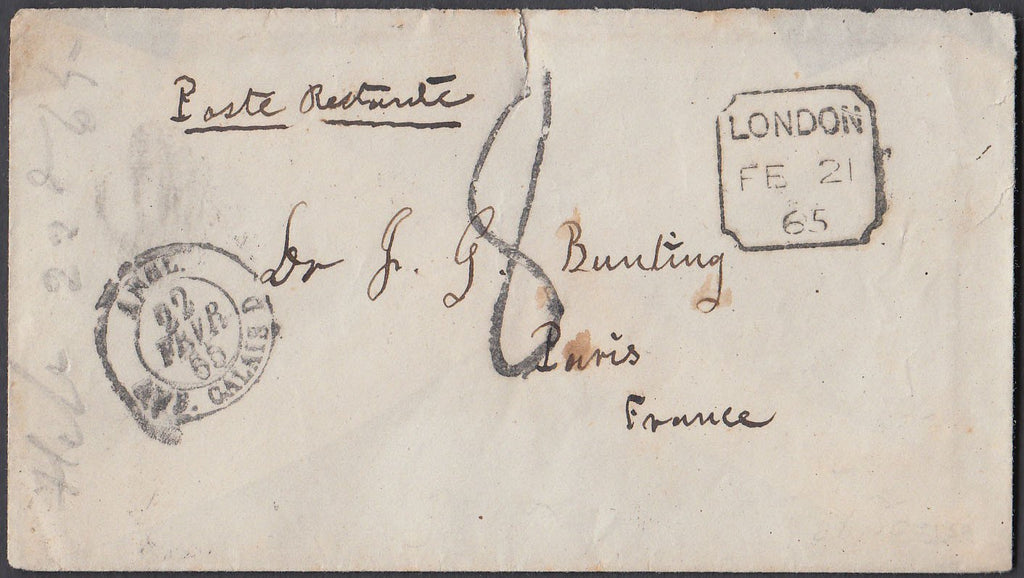 Poste Restante
LONDON
FE 21
65
8
Dr J. G. Bunting
Paris
France
ANGL.
22
FEVR
65
AMB. CALAIS D
22 2 65